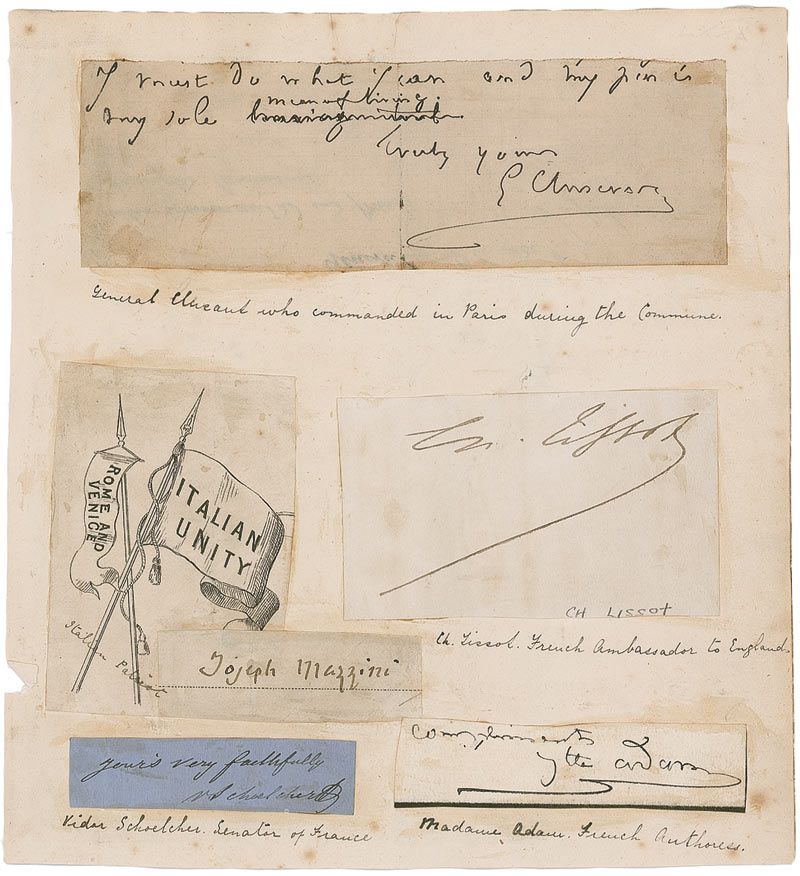 I must do what I can and my pen is
my sole
mean of living.
Truly yours
G Cluseret
General Cluseret who commanded in Paris during the Commune.
ROME AND
VENICE
ITALIAN
UNITY
Italian Patriot
Joseph Mazzini
Ch. Tissot
CH LISSOT
Ch. Tissot. French Ambassador to England.
yours very faithfully
V Schoelcher
Vidor Schoelcher. Senator of France
Compliments
Adam
Madame Adam. French Authoress.